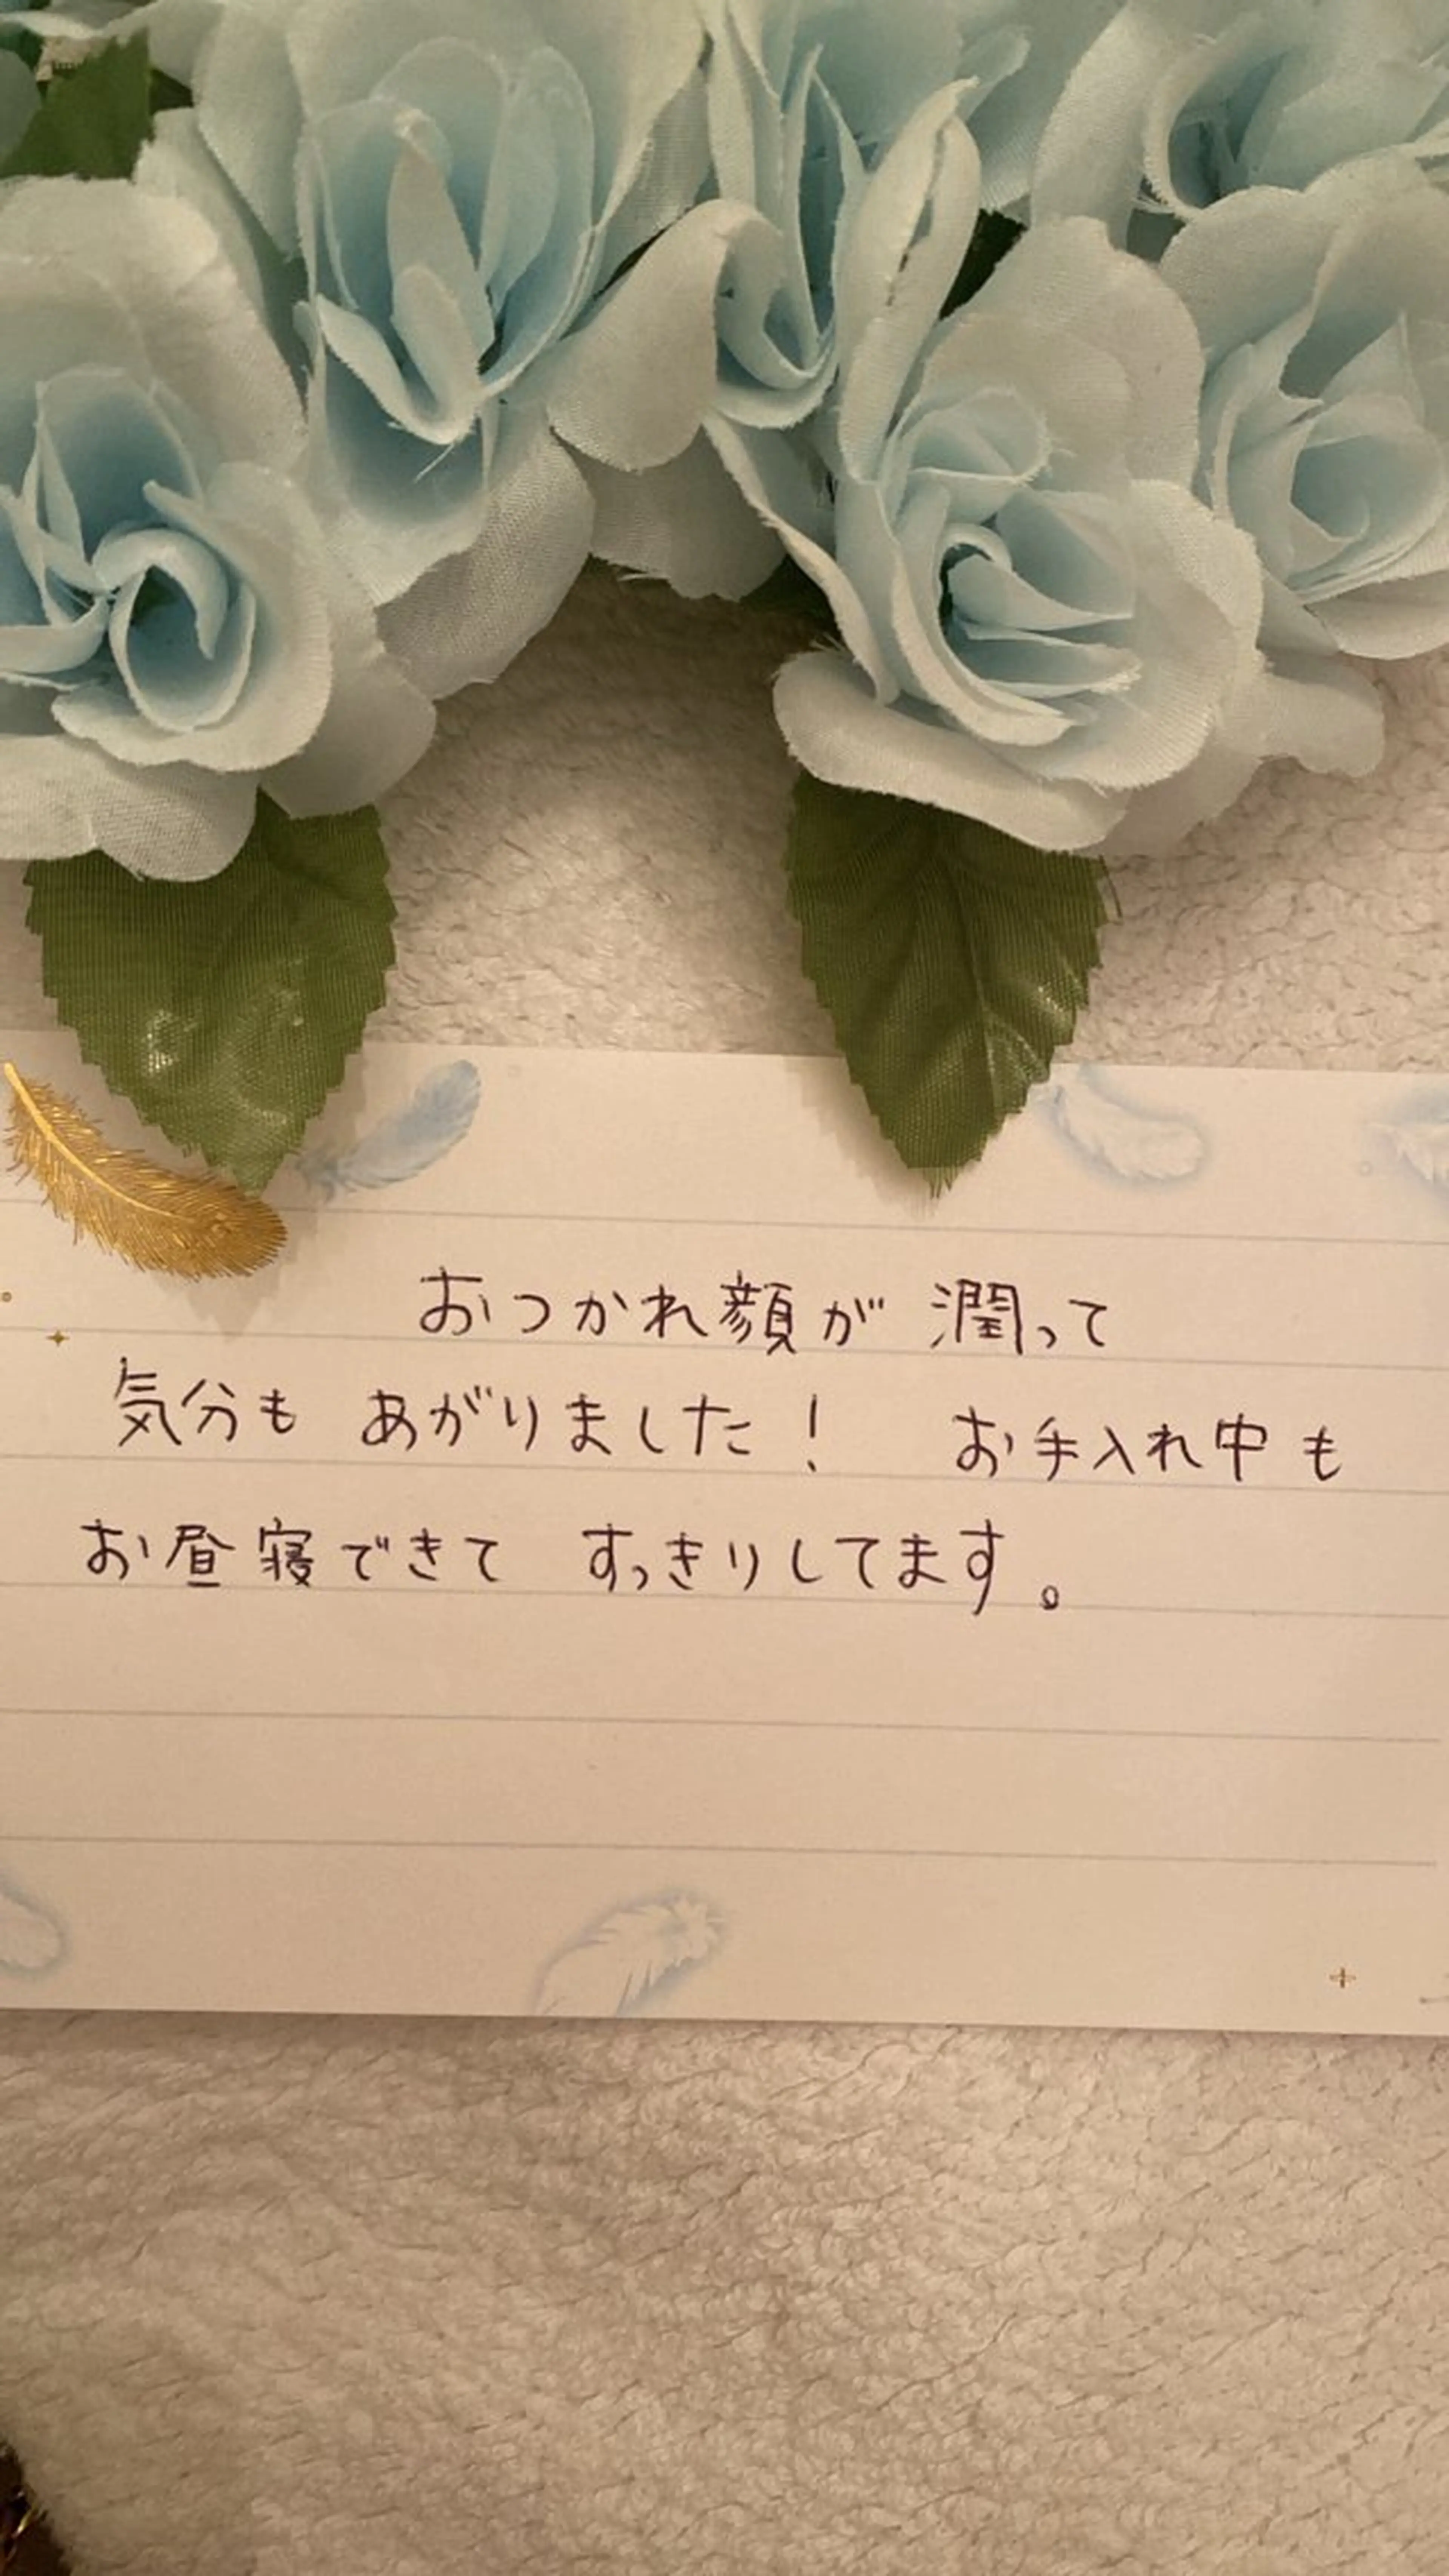 おつかれ顔が 潤って
気分も あがりました! お手入れ中も
お昼寝できて すっきりしてます。